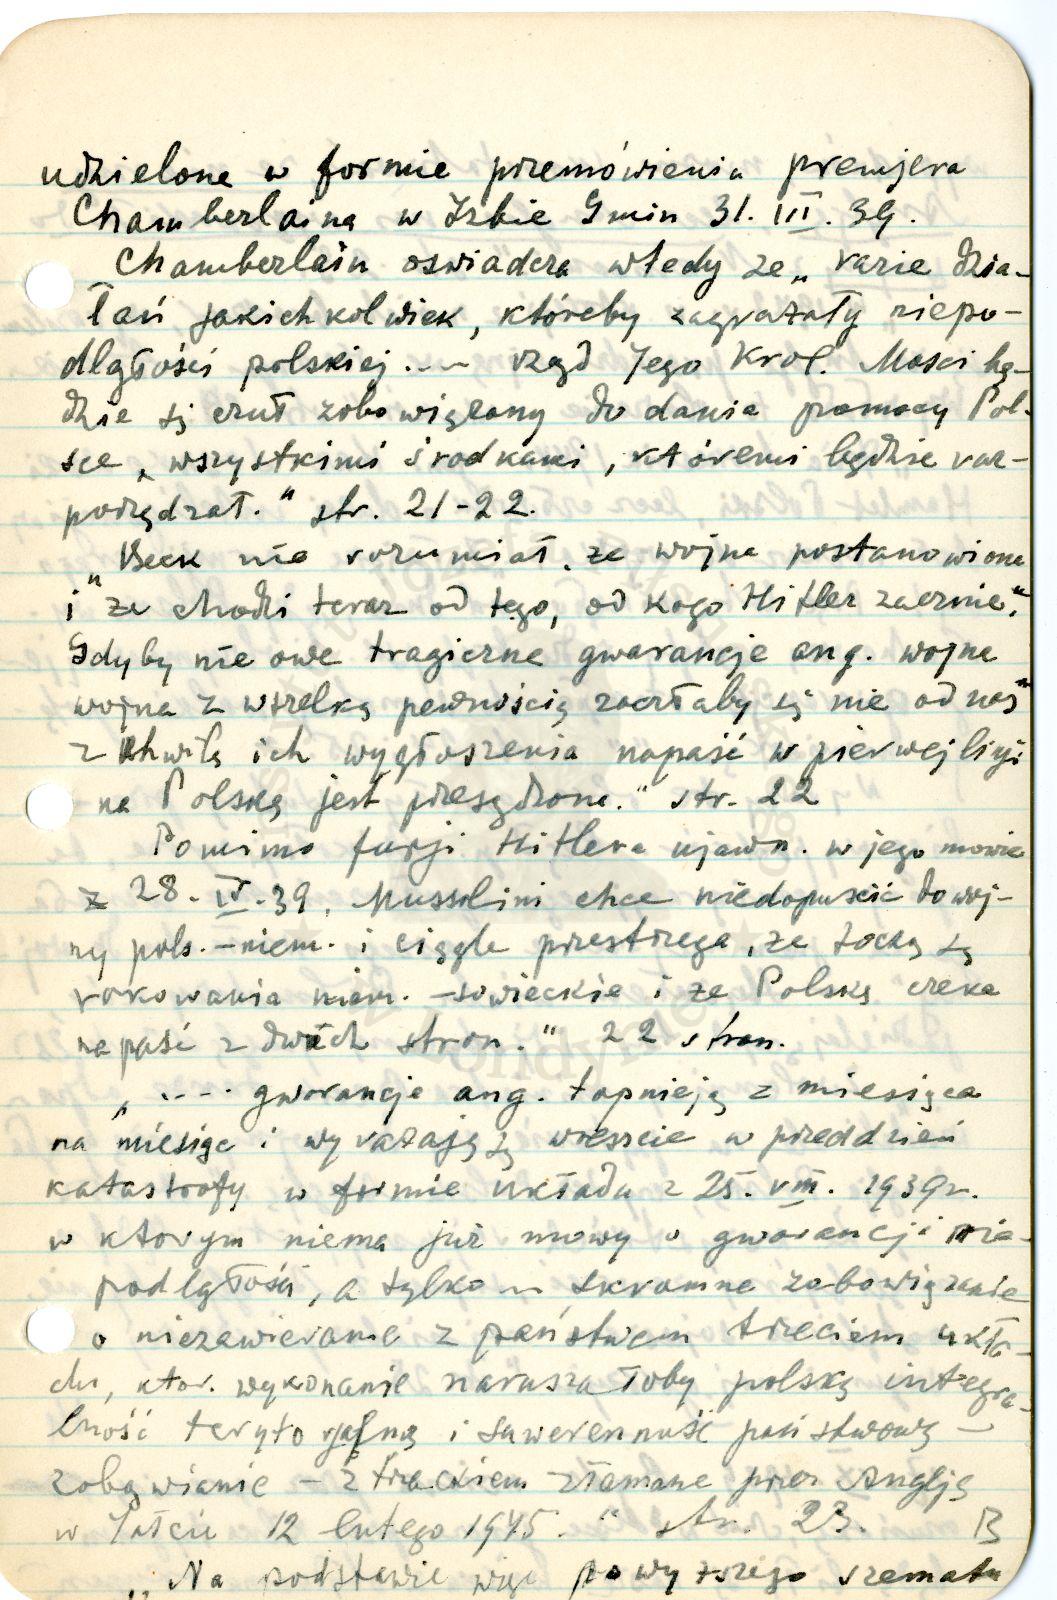 udzielone w formie przemówienia premjera
Chamberlaina w Izbie Gmin 31. III. 39.
Chamberlain oswiadcza wtedy ze „ razie dzia-
łań jakichkolwiek, któreby zagrażały niepo-
dległości polskiej .-- rząd Jego Krol. Mosci bę-
dzie się czuł zobowiązany do dania pomocy Pol-
sce „wszystkimi środkami, któremi będzie roz-
porządzał." str. 21-22.
Beck nie rozumiał, ze wojna postanowiona
i "ze chodzi teraz od tego, od kogo Hitler zacznie."
Gdyby nie owe tragiczne gwarancje ang. wojna
wojna z wszelką pewnością zaczłaby się nie od nas"
z chwilą ich wygłoszenia napaść w pierwej linji
na Polskę jest przesądzona." str. 22
Pomimo furji Hitlera ujawn. w jego mowie
z 28. IV. 39, Mussolini chce niedopuścić do woj-
ny pols. - niem. i ciągle przestrzega, ze toczą się
rokowania niem. - sowieckie i ze Polskę czeka
napaść z dwóch stron." 22 stron.
„ .... gwarancje ang. topnieją z miesiąca
na miesiąc i wyrażają się wreszcie w przeddzień
katastrofy w formie układu z 25. VIII. 1939 r.
w ktorym niema już mowy o gwarancji nie-
podległości, a tylko skromne zobowiązanie
o niezawieranie z państwem trzeciem ukła-
du, ktor. wykonanie naruszałoby polską integra-
lność terytorjalną i suwerenność państwową -
zobowianie - z trzaskiem złamane przez Anglję
w Jałcie 12 lutego 1945." str. 23. B
„Na podstawie więc powyższego szematu